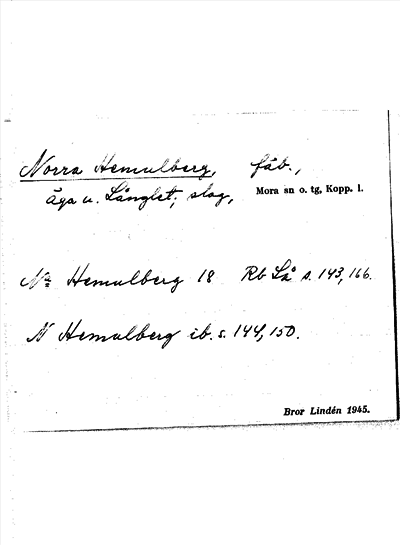 Norra Hemulberg, fäb.,
äga u. Långlet; slog,
Mora sn o. tg, Kopp. l.
Na Hemulberg 18 Rb Lå s. 143, 166.
N Hemulberg ib. s. 144, 150.
Bror Lindén 1945.